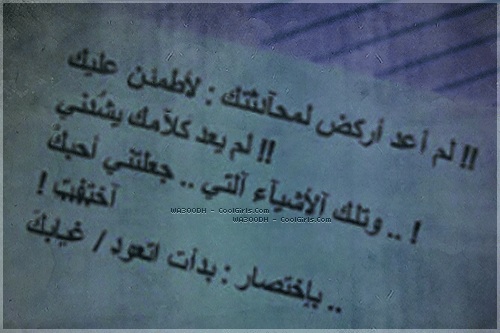 !! لم أعد أركض لمحآدثتك : لأطمئن عليك
!! لم يعد كلآمك يشدني
! .. وتلك آلأشيآء آلتي .. جعلتني أحبك
آختفت !
.. بإختصار : بدأت اتعود / غيابك
WA3OODH - CoolGirls.Com
WA3OODH - CoolGirls.Com